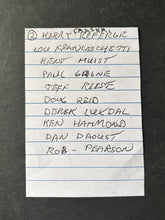 ② KERRY
LOU FRANCESCHETTI
KENT HUIST
PAUL
JEFF REESE
DOUG REID
DEREK LAXDAL
KEN HAMMOND
DAN DAOUST
ROB - PEARSON